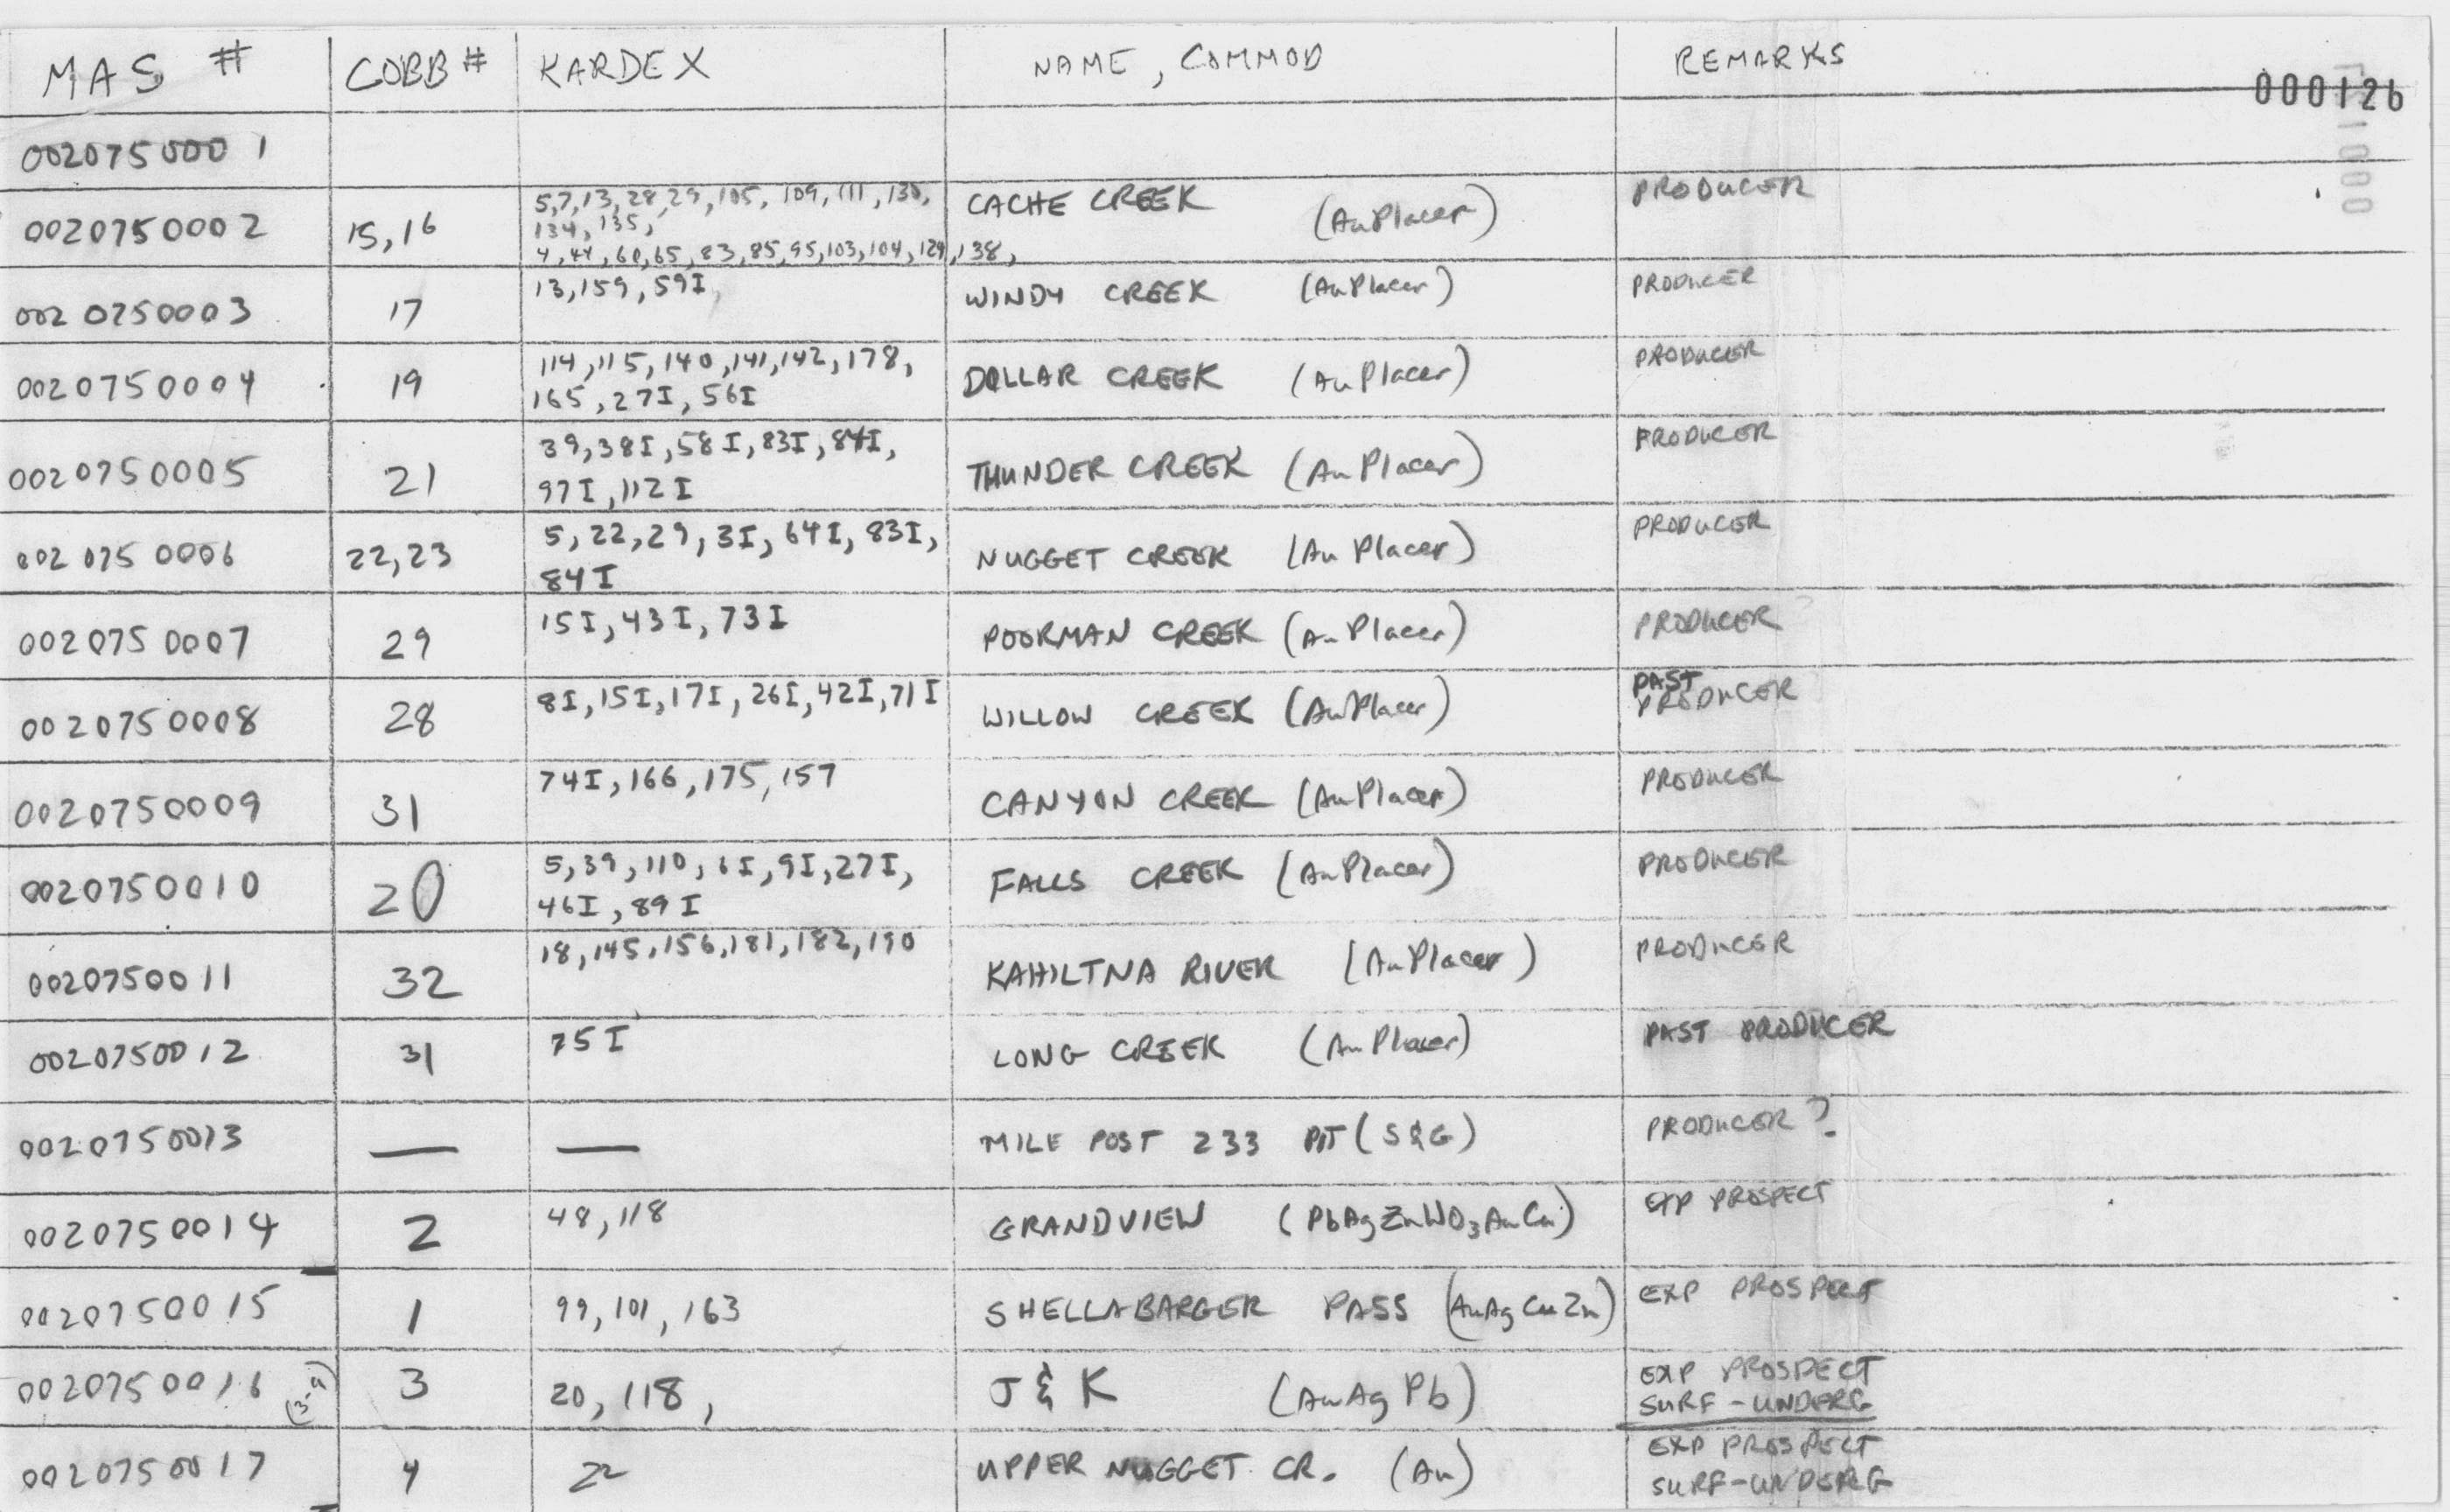 MAS # COBB # KARDEX NAME, COMMOD REMARKS
000126
0020750001
0020750002 15,16 5,7,13,28,29,105,109,111,130, CACHE CREEK (Au Placer) PRODUCER
134,135,
4,44,60,65,83,85,95,103,104,129,138,
0020750003 17 13,159,59I, WINDY CREEK (Au Placer) PRODUCER
0020750004 19 114,115,140,141,142,178, DOLLAR CREEK (Au Placer) PRODUCER
165,27I,56I
0020750005 21 39,38I,58I,83I,84I, THUNDER CREEK (Au Placer) PRODUCER
97I,112I
0020750006 22,23 5,22,29,3I,64I,83I, NUGGET CREEK (Au Placer) PRODUCER
84I
0020750007 29 15I,43I,73I POORMAN CREEK (Au Placer) PRODUCER?
0020750008 28 8I,15I,17I,26I,42I,71I WILLOW CREEK (Au Placer) PAST PRODUCER
0020750009 31 74I,166,175,157 CANYON CREEK (Au Placer) PRODUCER
0020750010 20 5,39,110,6I,9I,27I, FALLS CREEK (Au Placer) PRODUCER
46I,89I
0020750011 32 18,145,156,181,182,190 KAHILTNA RIVER (Au Placer) PRODUCER
0020750012 31 75I LONG CREEK (Au Placer) PAST PRODUCER
0020750013 — — MILE POST 233 PIT (S&G) PRODUCER?
0020750014 2 48,118 GRANDVIEW (PbAgZnWO3AuCu) EXP PROSPECT
0020750015 1 99,101,163 SHELLABARGER PASS (AuAgCuZn) EXP PROSPECT
0020750016 (3-4) 3 20,118, J & K (AuAgPb) EXP PROSPECT
SURF-UNDERG
0020750017 4 22 UPPER NUGGET CR. (Au) EXP PROSPECT
SURF-UNDERG